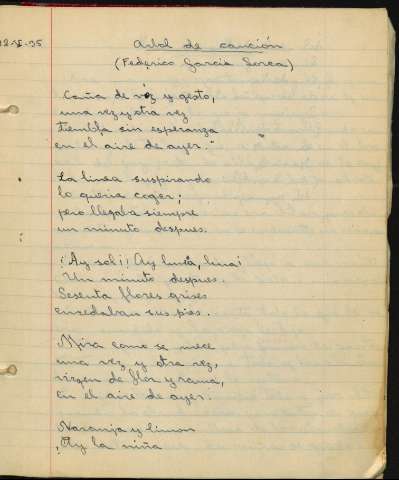 12-V-35
Arbol de canción
(Federico Garcia Lorca)
Caña de voz y gesto,
una vez y otra vez
tiembla sin esperanza
en el aire de ayer."
La linea suspirando
lo queria coger;
pero llegaba siempre
un minuto despues.
¡Ay sol¡! Ay luna, luna¡
Un minuto despues.
Sesenta flores grises
enredaban sus pies.
Mira como se mece
una vez y otra vez,
virgen de flor y rama,
en el aire de ayer.
Naranja y limon
¡Ay la niña